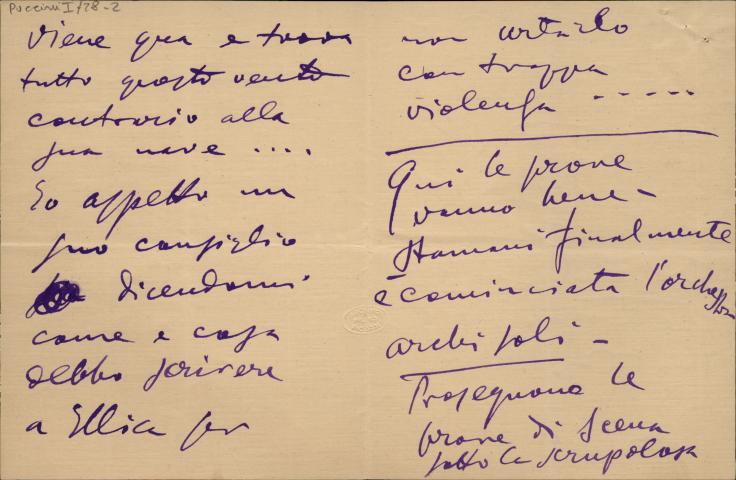 Puccini I/28-2
viene qua e trova
tutto questo vento
contrario alla
sua nave ....
Io aspetto un
suo consiglio
dicendomi
come e cosa
debbo scrivere
a Ellica per
non urtarlo
con troppa
violenza .....
Qui le prove
vanno bene -
Stamani finalmente
è cominciata l'orchestra
archi soli -
Proseguono le
prove di scena
sotto la scrupolosa